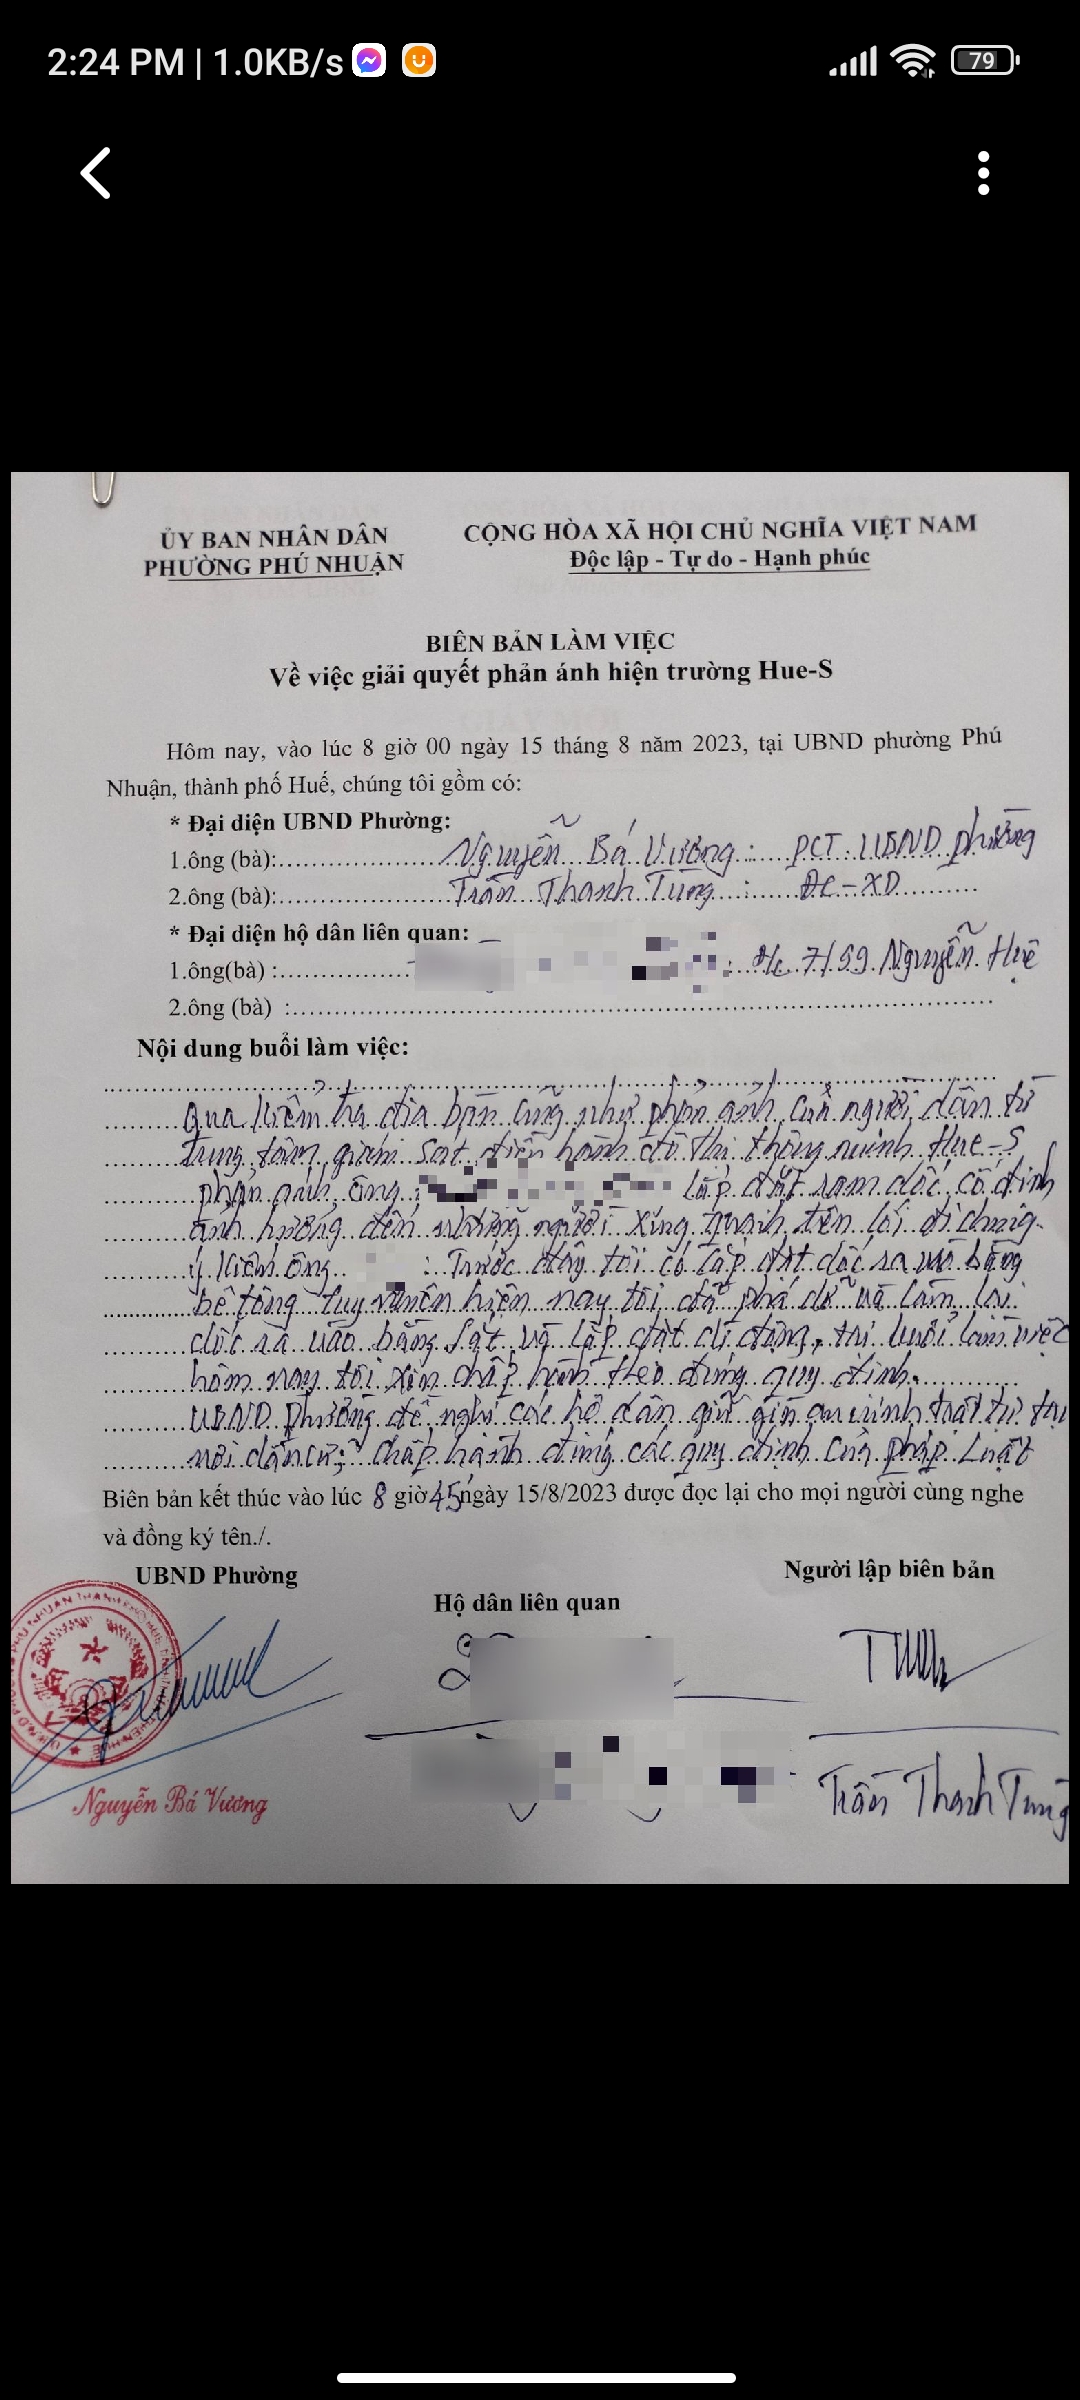 2:24 PM | 1.0KB/s
79
ỦY BAN NHÂN DÂN
PHƯỜNG PHÚ NHUẬN
CỘNG HÒA XÃ HỘI CHỦ NGHĨA VIỆT NAM
Độc lập - Tự do - Hạnh phúc
BIÊN BẢN LÀM VIỆC
Về việc giải quyết phản ánh hiện trường Hue-S
Hôm nay, vào lúc 8 giờ 00 ngày 15 tháng 8 năm 2023, tại UBND phường Phú
Nhuận, thành phố Huế, chúng tôi gồm có:
* Đại diện UBND Phường:
1.ông (bà): Nguyễn Bá Vương : PCT UBND phường
2.ông (bà): Trần Thanh Tùng : ĐC-XD
* Đại diện hộ dân liên quan:
1.ông(bà) : : Đ/c 7/59 Nguyễn Huệ
2.ông (bà) :
Nội dung buổi làm việc:
Qua kiểm tra địa bàn cũng như phản ánh của người dân từ
trung tâm giám sát điều hành đô thị thông minh Hue-S
phản ánh ông lắp đặt ram dốc cố định
ảnh hưởng đến những người xung quanh trên lối đi chung.
ý kiến ông : Trước đây tôi có lắp đặt dốc ra vào bằng
bê tông tuy nhiên hiện nay tôi đã phá dỡ và làm lại
dốc ra vào bằng sắt và lắp đặt di động, tại buổi làm việc
hôm nay tôi xin chấp hành theo đúng quy định.
UBND phường đề nghị các hộ dân giữ gìn an ninh trật tự tại
nơi dân cư; chấp hành đúng các quy định của pháp luật
Biên bản kết thúc vào lúc 8 giờ 45 ngày 15/8/2023 được đọc lại cho mọi người cùng nghe
và đồng ký tên./.
UBND Phường
Hộ dân liên quan
Người lập biên bản
Nguyễn Bá Vương
Trần Thanh Tùng